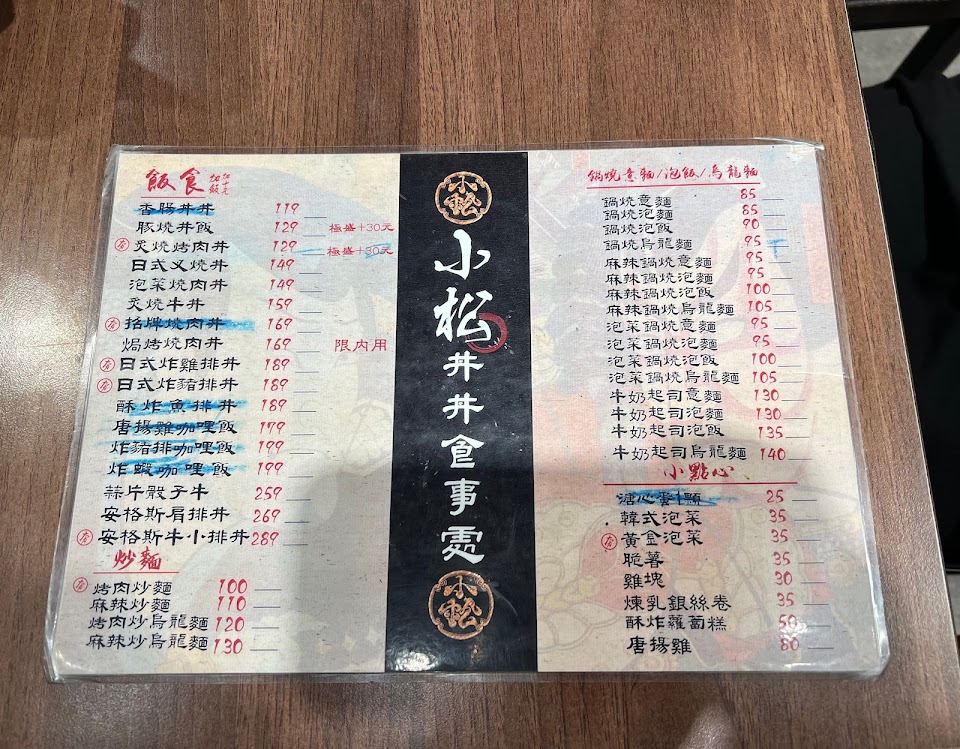 飯食 加飯加十元
香腸丼丼 119
豚燒丼飯 129 極盛+30元
炙燒烤肉丼 129 極盛+30元
日式叉燒丼 149
泡菜燒肉丼 149
炙燒牛丼 159
招牌燒肉丼 169
焗烤燒肉丼 169 限內用
日式炸雞排丼 189
日式炸豬排丼 189
酥炸魚排丼 189
唐揚雞咖哩飯 179
炸豬排咖哩飯 199
炸蝦咖哩飯 199
蒜片骰子牛 259
安格斯肩排丼 269
安格斯牛小排丼 289
炒麵
烤肉炒麵 100
麻辣炒麵 110
烤肉炒烏龍麵 120
麻辣炒烏龍麵 130
小松
小松丼丼食事處
小松
鍋燒意麵/泡飯/烏龍麵
鍋燒意麵 85
鍋燒泡麵 85
鍋燒泡飯 90
鍋燒烏龍麵 95
麻辣鍋燒意麵 95
麻辣鍋燒泡麵 95
麻辣鍋燒泡飯 100
麻辣鍋燒烏龍麵 105
泡菜鍋燒意麵 95
泡菜鍋燒泡麵 95
泡菜鍋燒泡飯 100
泡菜鍋燒烏龍麵 105
牛奶起司意麵 130
牛奶起司泡麵 130
牛奶起司泡飯 135
牛奶起司烏龍麵 140
小點心
溏心蛋1顆 25
韓式泡菜 35
黃金泡菜 35
脆薯 35
雞塊 30
煉乳銀絲卷 35
酥炸蘿蔔糕 50
唐揚雞 80